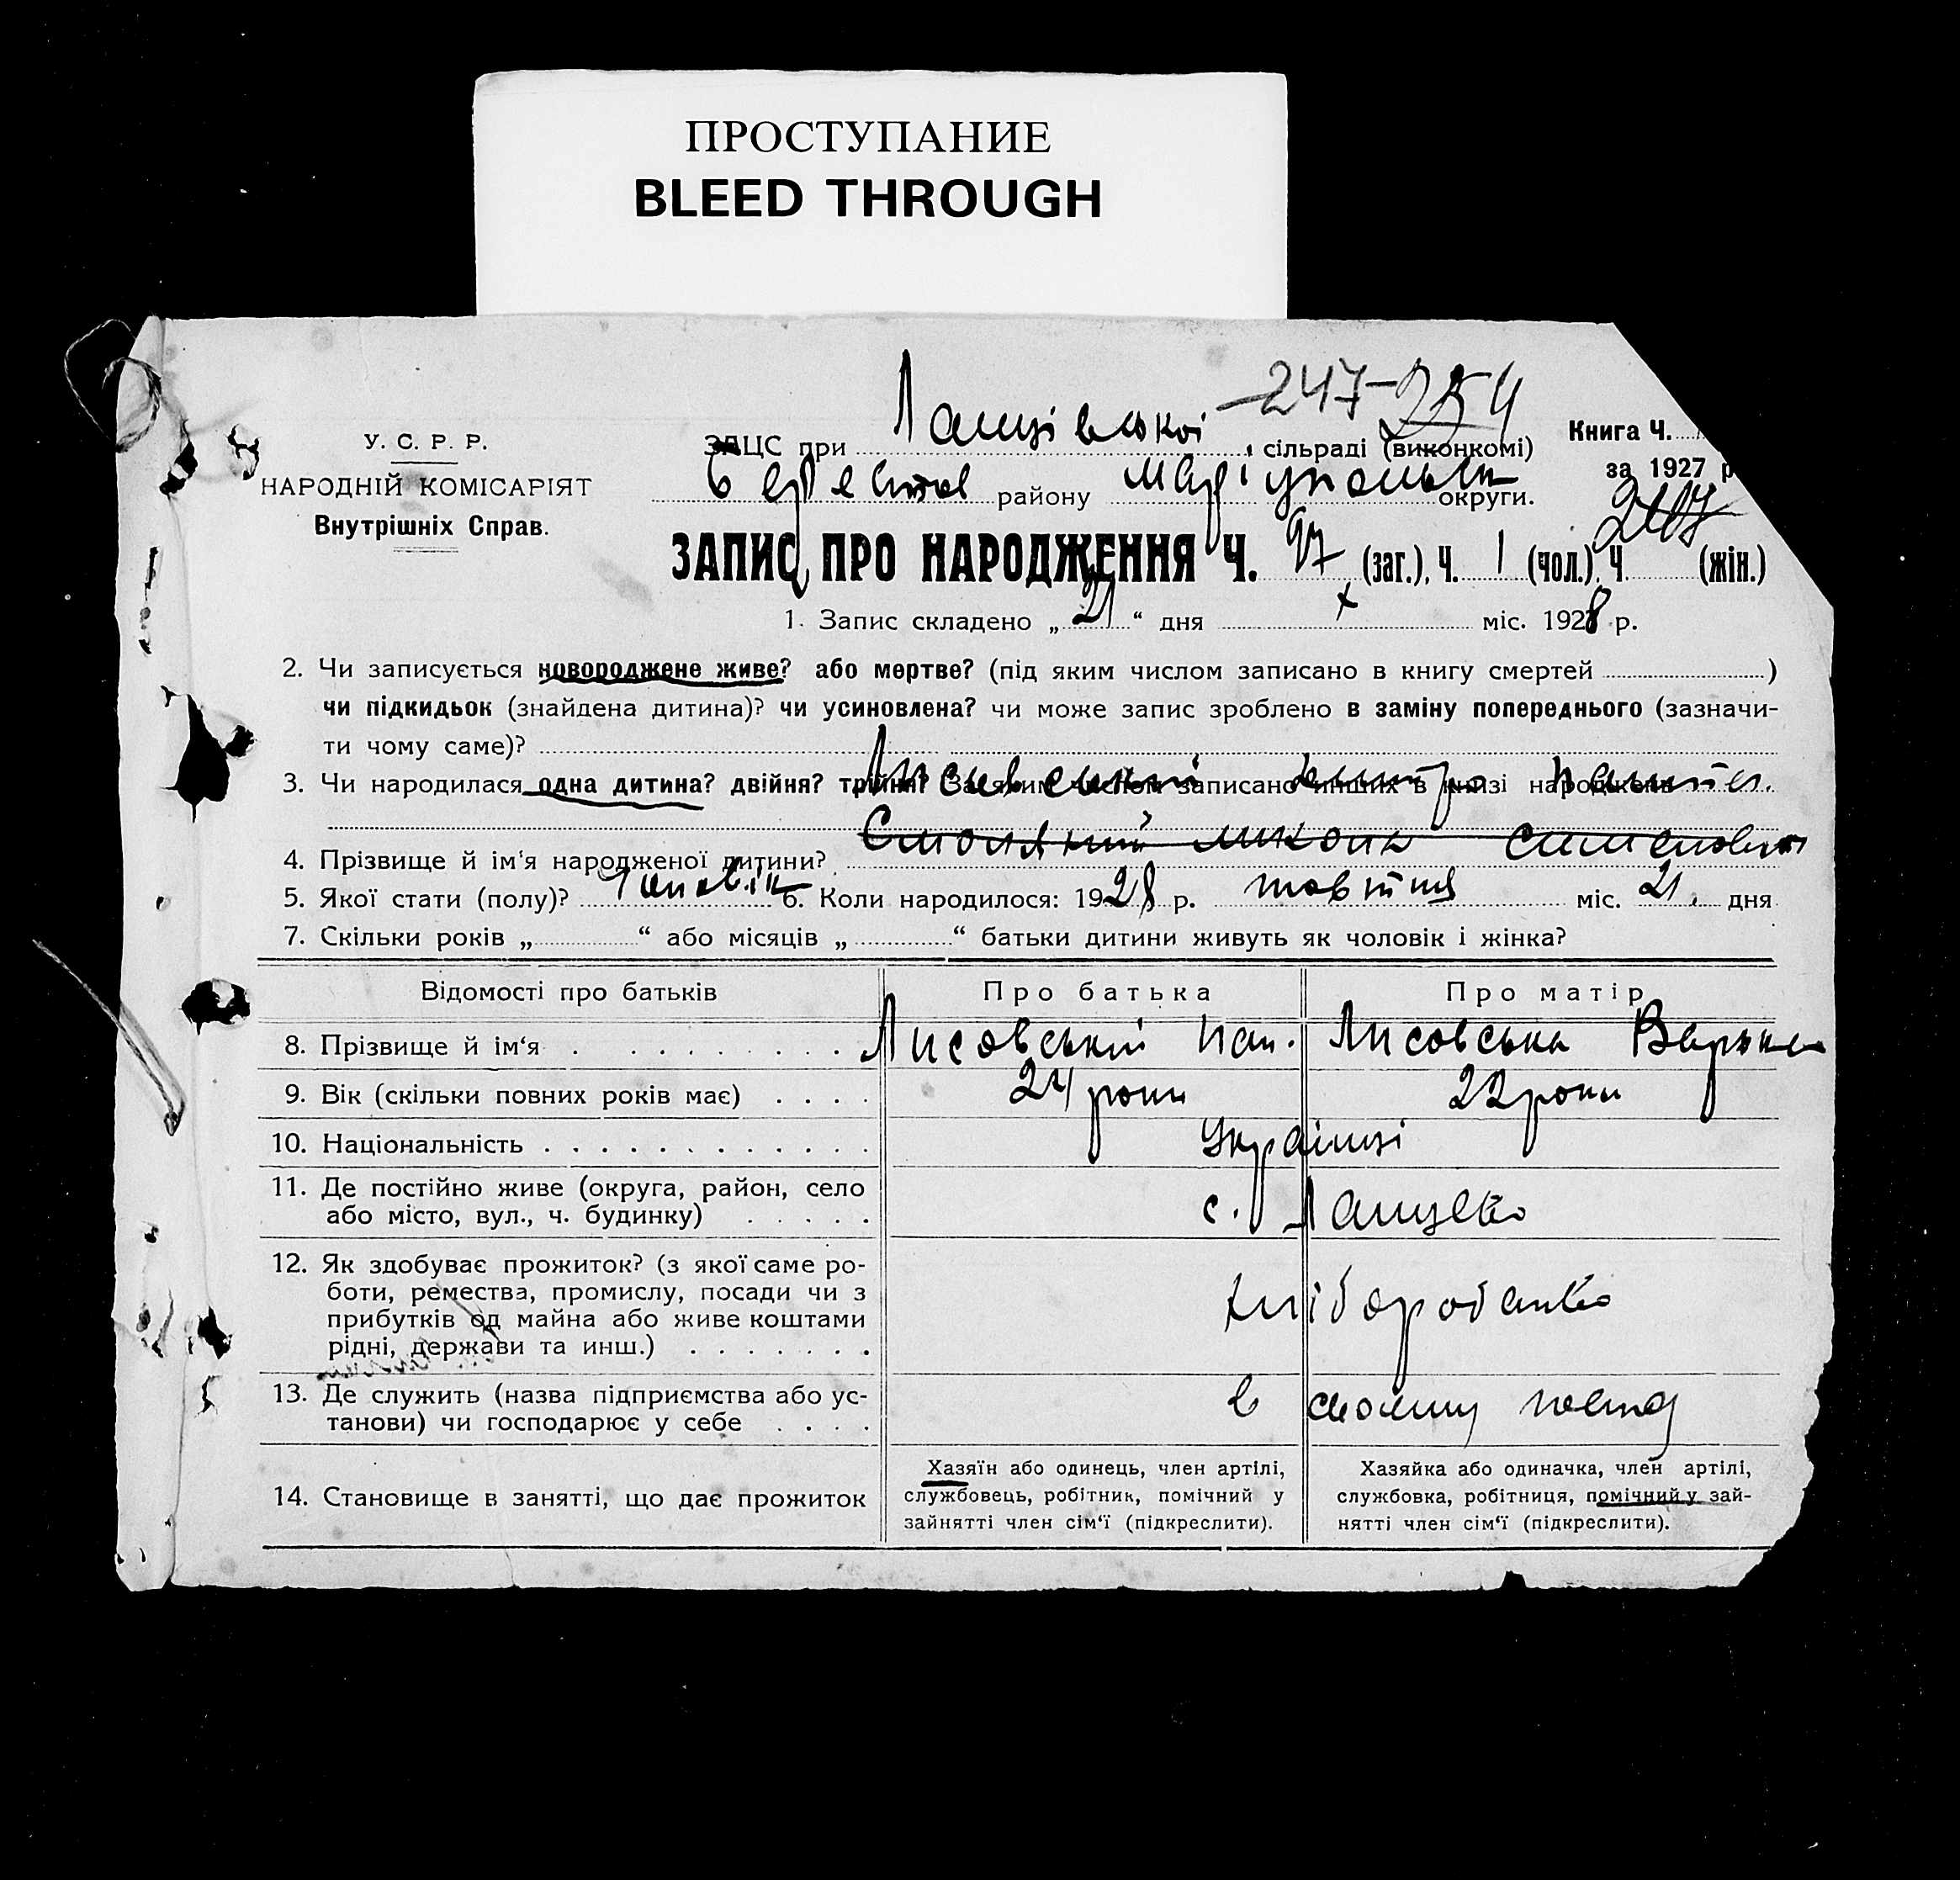 ПРОСТУПАНИЕ
BLEED THROUGH
247-254
У. С. Р. Р.
НАРОДНІЙ КОМІСАРІЯТ
Внутрішніх Справ.
ЗАЦС при сільраді (виконкомі)
Книга Ч.
за 1927 р
району Маріупольськ округи.
ЗАПИС ПРО НАРОДЖЕННЯ Ч. 97 (заг.), Ч. 1 (чол.), Ч. (жін.)
1. Запис складено „21“ дня X міс. 1928 р.
2. Чи записується новороджене живе? або мертве? (під яким числом записано в книгу смертей )
чи підкидьок (знайдена дитина)? чи усиновлена? чи може запис зроблено в заміну попереднього (зазначи-
ти чому саме)?
3. Чи народилася одна дитина? двійня? трійня? За яким числом записано инших в книзі народжень
4. Прізвище й ім'я народженої дитини?
5. Якої стати (полу)? Чоловік 6. Коли народилося: 1928 р. жовтня міс. 21 дня
7. Скільки років „ “ або місяців „ “ батьки дитини живуть як чоловік і жінка?
Відомості про батьків Про батька Про матір
8. Прізвище й ім'я Лисовський Пан. Лисовська Варька
9. Вік (скільки повних років має) 24 роки 22 роки
10. Національність Українці
11. Де постійно живе (округа, район, село
або місто, вул., ч. будинку) с.
12. Як здобуває прожиток? (з якої саме ро-
боти, ремества, промислу, посади чи з
прибутків од майна або живе коштами
рідні, держави та инш.)
хліборобство
13. Де служить (назва підприємства або ус-
танови) чи господарює у себе
в свойому
14. Становище в занятті, що дає прожиток
Хазяїн або одинець, член артілі,
службовець, робітник, помічний у
зайнятті член сім'ї (підкреслити).
Хазяйка або одиначка, член артілі,
службовка, робітниця, помічний у зай-
нятті член сім'ї (підкреслити).